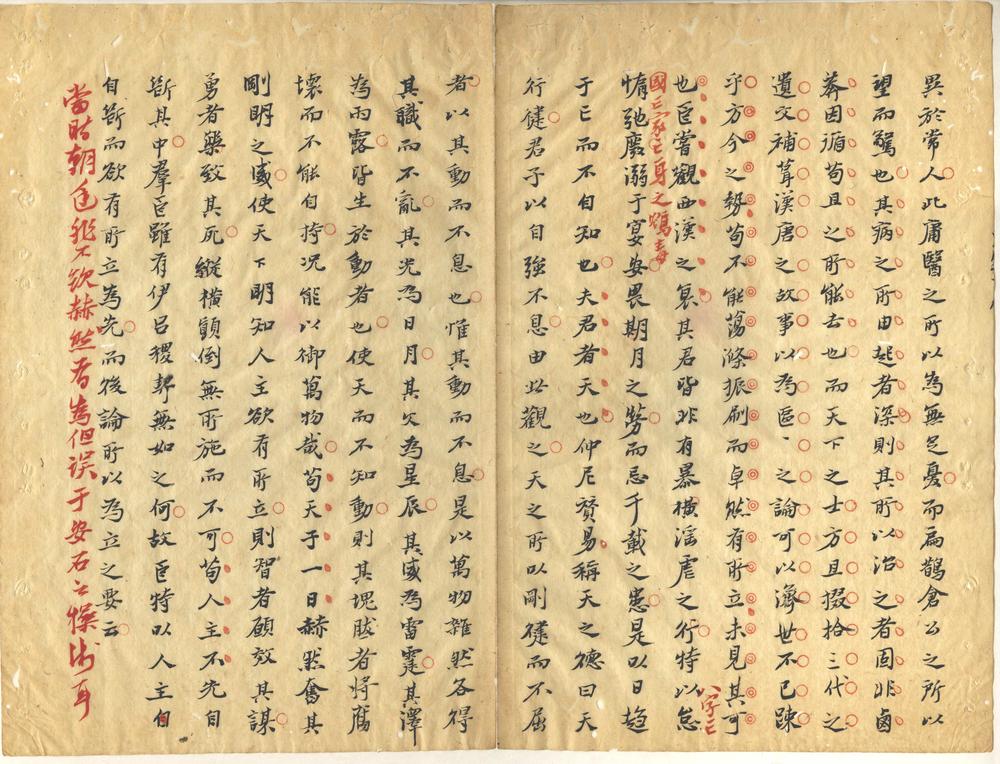 異於常人此庸醫之所以為無足憂而扁鵲倉公之所以
望而驚也其病之所由起者深則其所以治之者固非鹵
莾因循苟且之所能去也而天下之士方且掇拾三代之
遺文補葺漢唐之故事以為區〻之論可以濟世不已踈
乎方今之勢苟不能蕩滌振刷而卓然有所立未見其可
也臣嘗觀西漢之衰其君皆非有暴橫滛虐之行特以怠
八字亡
國亡家亡身之鴆毒
惰弛廢溺于宴安畏期月之勞而忘千載之患是以日趋
于亡而不自知也夫君者天也仲尼贊易稱天之德曰天
行健君子以自強不息由此觀之天之所以剛健而不屈
者以其動而不息也惟其動而不息是以萬物雜然各得
其職而不亂其光為日月其文為星辰其威為雷霆其澤
為雨露皆生於動者也使天而不知動則其塊胈者將腐
壞而不能自持况能以御萬物哉苟天子一日赫然奮其
剛明之威使天下明知人主欲有所立則智者願效其謀
勇者樂致其死縱橫顛倒無所施而不可苟人主不先自
斷其中羣臣雖有伊呂稷契無如之何故臣特以人主自
自斷而欲有所立為先而後論所以為立之要云
當時朝廷非不欲赫然有為但误于安石之憸術耳